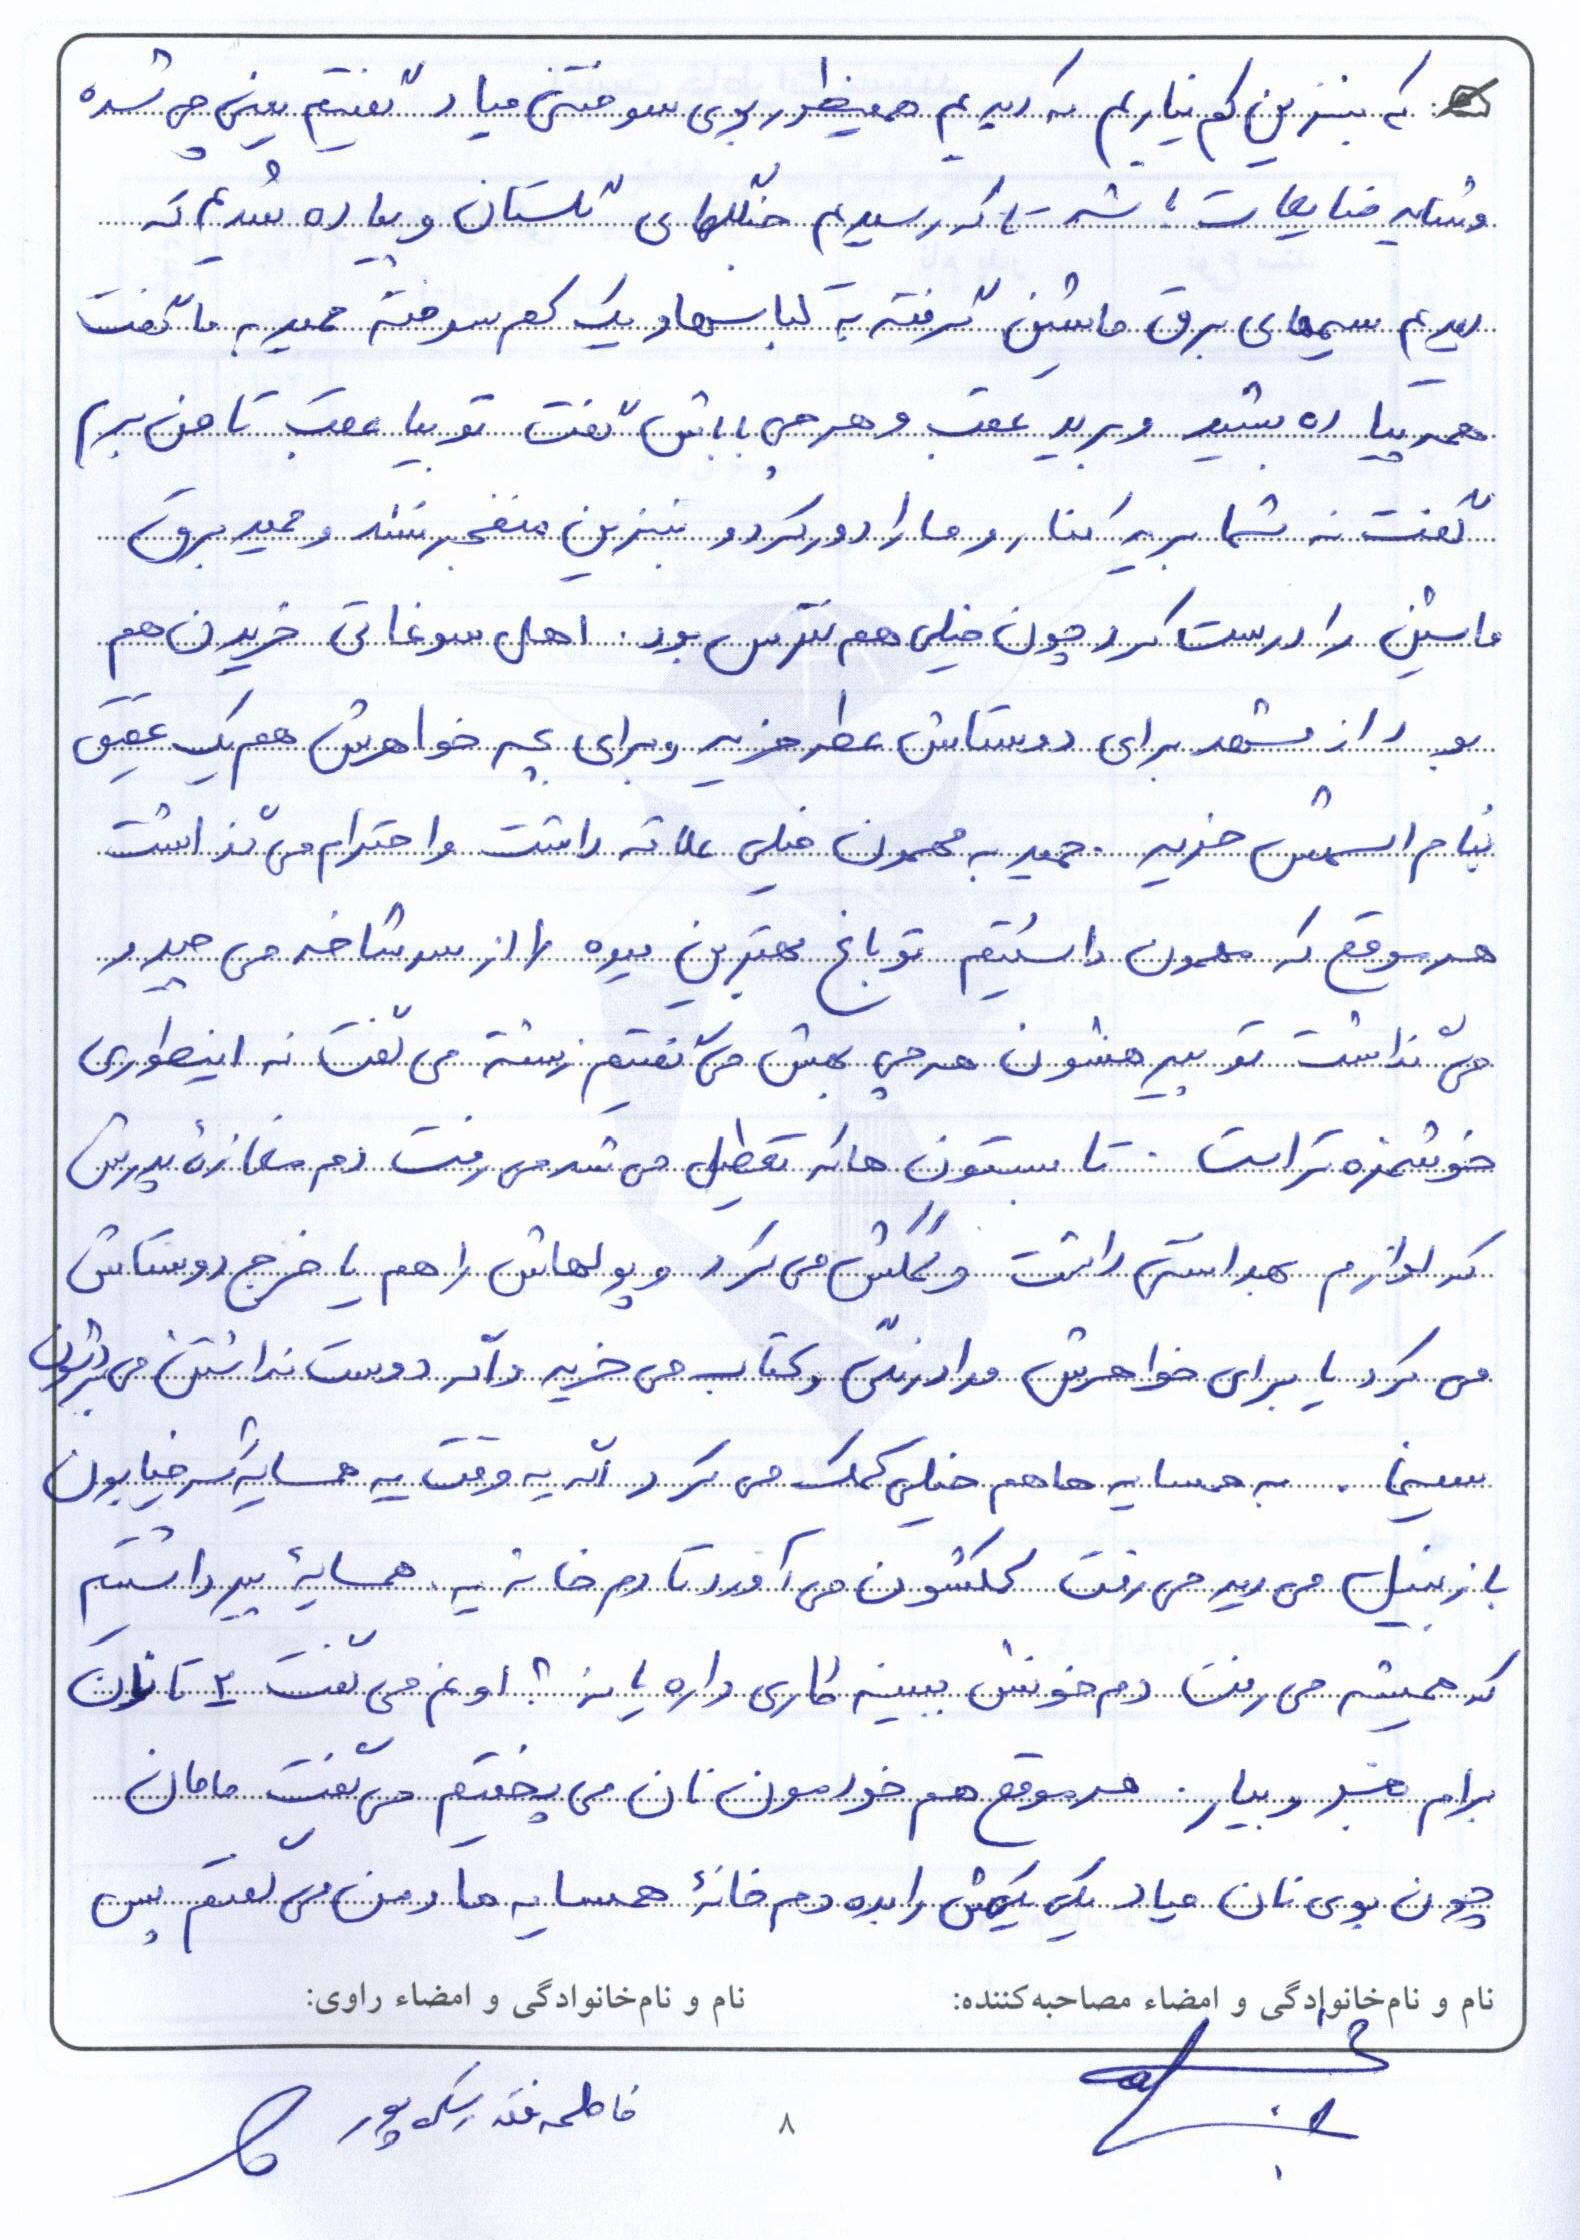 که بنزین کم نیاریم که دیدیم همینطور بوی سوختنی میاد گفتیم یعنی چی شده
و شاید ضایعات باشه تا که رسیدیم جنگلهای گلستان و پیاده شدیم که
دیدیم سیمهای برق ماشین گرفته به لباسها و یک کم سوخته حمید به ما گفت
همه پیاده بشید و برید عقب و هر چی باباش گفت تو بیا عقب تا من برم
گفت نه شما برید کنار و ما را دور کرد و بنزین منفجر نشد و حمید برق
ماشین را درست کرد چون خیلی هم نترس بود. اهل سوغاتی خریدن هم
بود از مشهد برای دوستاش عطر خرید و برای بچه خواهرش هم یک عقیق
بنام اسمش خرید. حمید به مهمون خیلی علاقه داشت و احترام می گذاشت
هر موقع که مهمون داشتیم تو باغ بهترین میوه را از سر شاخه می چید و
می گذاشت تو پیرهنشون هر چی بهش می گفتیم زشته می گفت نه اینطوری
خوشمزه تر است. تابستون ها که تعطیل می شد می رفت دم مغازۀ پدرش
که لوازم بهداشتی داشت و کمکش می کرد و پولهاش را هم یا خرج دوستاش
می کرد یا برای خواهرش مداد رنگی و کتاب می خرید و اگه دوست نداشتن می بردشون
سینما. به همسایه ها هم خیلی کمک می کرد اگه یه وقت یه همسایه سر خیابون
با زنبیل می دید می رفت کمکشون می آورد تا دم خانه یه همسایۀ پیر داشتیم
که همیشه می رفت دم خونش ببینه کاری داره یا نه؟ اونم می گفت ۲ تا نان
برام بخر و بیار. هر موقع هم خودمون نان می پختیم می گفت مامان
چون بوی نان میاد یکی یکیش را بده دم خانۀ همسایه ها و من می گفتم پس
نام و نام‌خانوادگی و امضاء مصاحبه‌کننده:
نام و نام‌خانوادگی و امضاء راوی:
فاطمه پور
۸